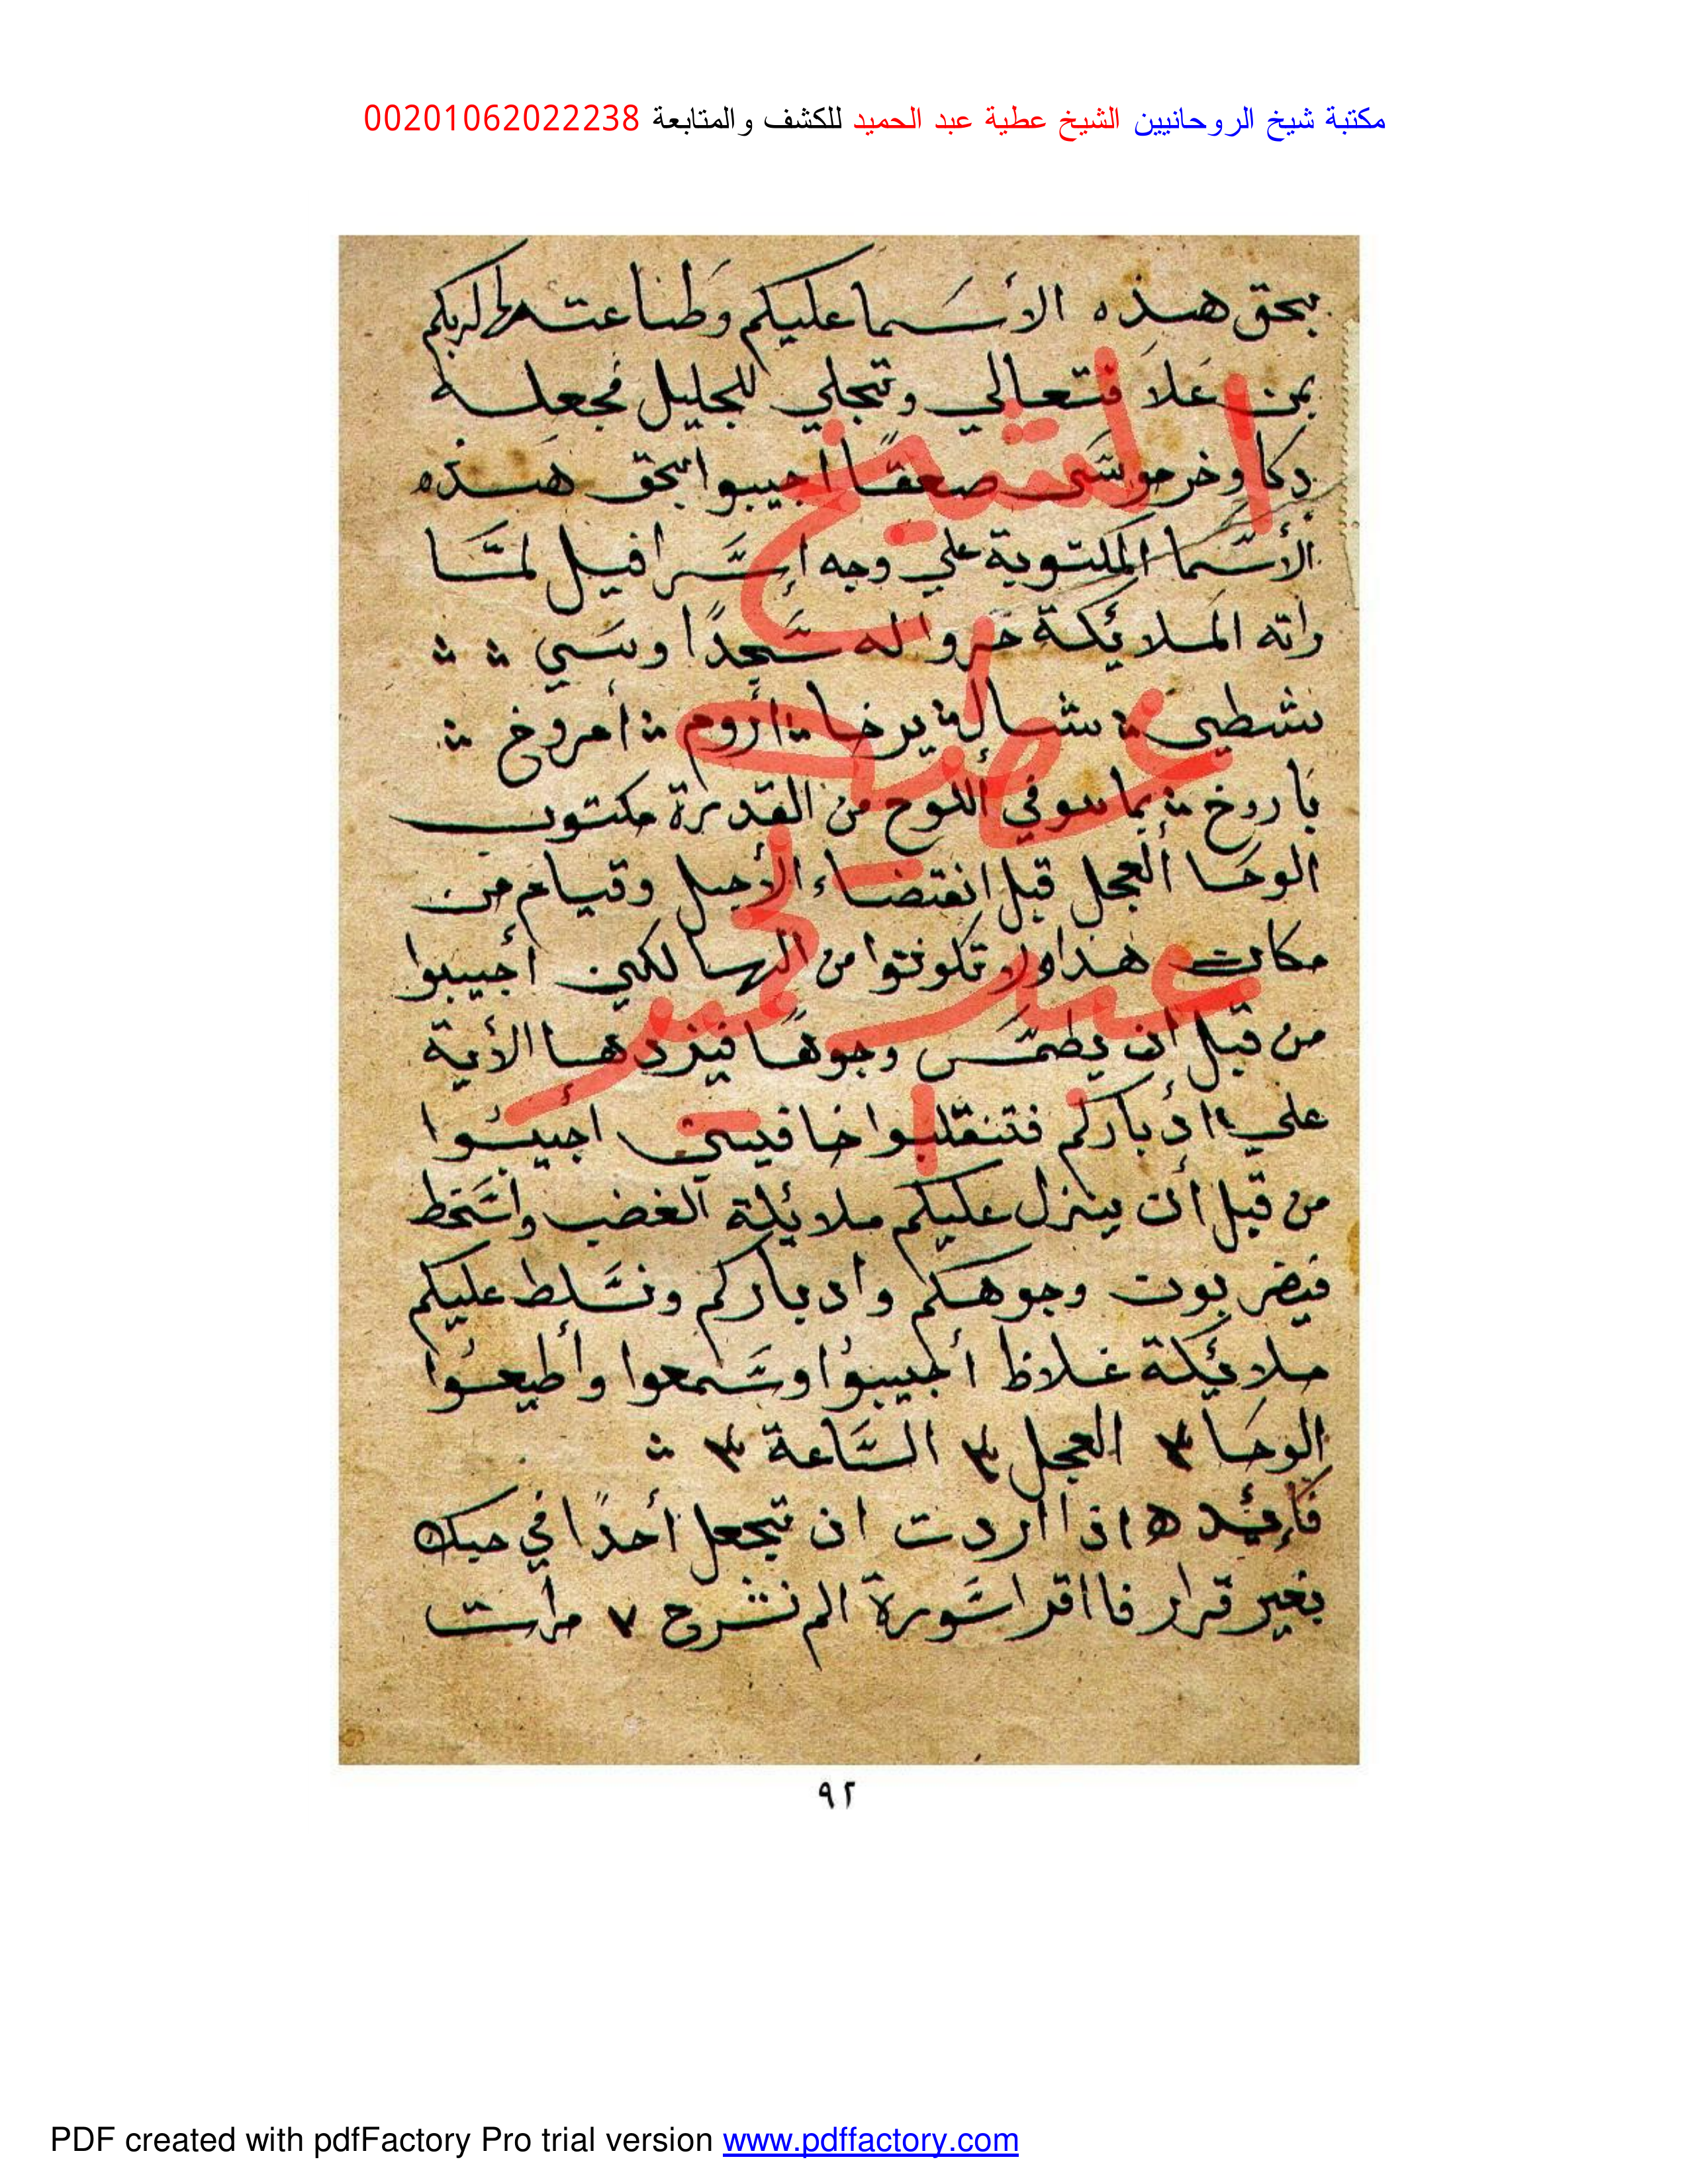 مكتبة شيخ الروحانيين الشيخ عطية عبد الحميد للكشف والمتابعة 00201062022238
بحق هذه الأسما عليكم وطاعتها لربكم
بمن علا فتعالي وتجلي للجليل فجعله
دكا وخر موسى صعقا اجيبوا بحق هذه
الأسما المكتوبة علي وجه إسرافيل لمّا
راته الملائكة خروا له سجدًا وسي
شطيى شالى يرخا أروم أمروخ
باروخ بما سوفي اللوح من القدرة مكتوب
الوحا العجل قبل انقتضاء الأجل وقيام من
مكانت هذا ولا تكونوا من الهالكين أجيبوا
من قبل ان يطمس وجوها فيزدها الأية
علي ادباركم فتنقلبوا خافيين اجيبوا
من قبل أن ينزل عليكم ملائكة الغضب واسخط
فيضربون وجوهكم وادباركم ونسلط عليكم
ملائكة غلاظ أجيبوا وسمعوا وأطيعوا
الوحا ٣ العجل ٣ السّاعة ٣
فإئده اذا اردت ان تجعل أحدًا في حبك
بغير قرار فااقرا سورة الم نشرح ٧ مرات
الشيخ
عطيه
عبد الحميد
٩٢
PDF created with pdfFactory Pro trial version www.pdffactory.com